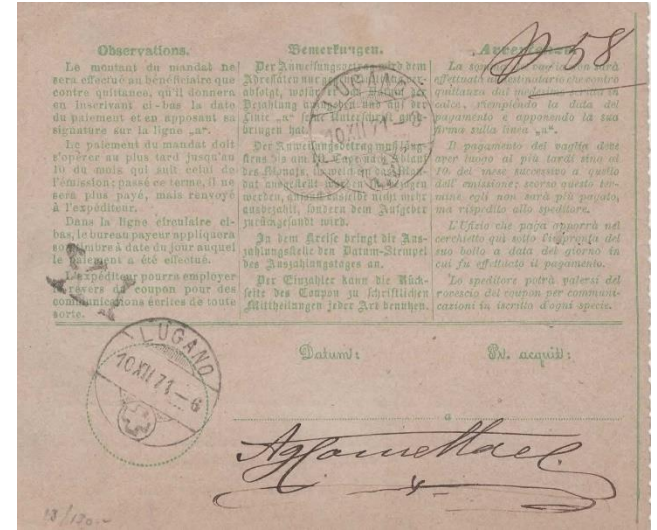 Observations.
Le montant du mandat ne
sera effectué au bénéficiaire que
contre quittance, qu'il donnera
en inscrivant ci-bas la date
du paiement et en apposant sa
signature sur la ligne „a“.
Le paiement du mandat doit
s'opérer au plus tard jusqu'au
10 du mois qui suit celui de
l'émission; passé ce terme, il ne
sera plus payé, mais renvoyé
à l'expéditeur.
Dans la ligne circulaire ci-
bas, le bureau payeur appliquera
son timbre à date du jour auquel
le paiement a été effectué.
L'expéditeur pourra employer
le revers du coupon pour des
communications écrites de toute
sorte.
Bemerkungen.
Der Anweisungsbetrag wird dem
Adressaten nur gegen
Bezahlung angegeben und auf der
Linie „a“ seine Unterschrift
bringen hat.
Der Anweisungsbetrag muß
des Monats, in welchem das Man-
dat ausgestellt worden
werden, ansonst derselbe nicht mehr
ausbezahlt, sondern dem Aufgeber
zurückgesandt wird.
In dem Kreise bringt die Aus-
zahlungsstelle den Datum-Stempel
des Auszahlungstages an.
Der Einzahler kann die Rück-
seite des Coupon zu schriftlichen
Mittheilungen jeder Art benutzen.
Avvertenze.
La
effettuata al destinatario che contro
quittanza dal medesimo
calce, riempiendo la data del
pagamento e apponendo la sua
firma sulla linea „a“.
Il pagamento del vaglia deve
aver luogo al più tardi sino al
10 del mese successivo a quello
dell' emissione; scorso questo ter-
mine egli non sarà più pagato,
ma rispedito allo speditore.
L'Ufizio che paga apporrà nel
cerchietto qui sotto l'impronta del
suo bollo a data del giorno in
cui fu effettuato il pagamento.
Lo speditore potrà valersi del
rovescio del coupon per communi-
cazioni in iscritto d'ogni specie.
58
LUGANO
10 XII 71 – 6
LUGANO
10 XII 71 – 6
Datum:
Pr. acquit:
a
18/120.-